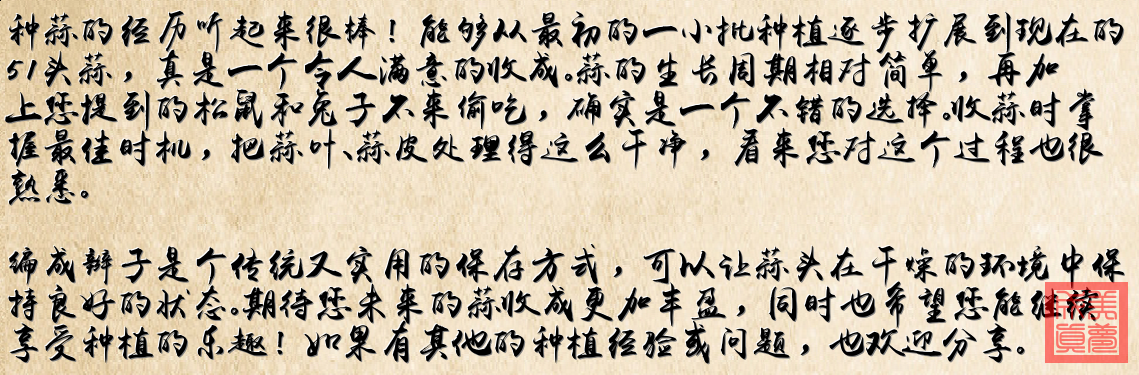 种蒜的经历听起来很棒！能够从最初的一小批种植逐步扩展到现在的
51头蒜，真是一个令人满意的收成。蒜的生长周期相对简单，再加
上您提到的松鼠和兔子不来偷吃，确实是一个不错的选择。收蒜时掌
握最佳时机，把蒜叶、蒜皮处理得这么干净，看来您对这个过程也很
熟悉。
编成辫子是个传统又实用的保存方式，可以让蒜头在干燥的环境中保
持良好的状态。期待您未来的蒜收成更加丰盈，同时也希望您能继续
享受种植的乐趣！如果有其他的种植经验或问题，也欢迎分享。